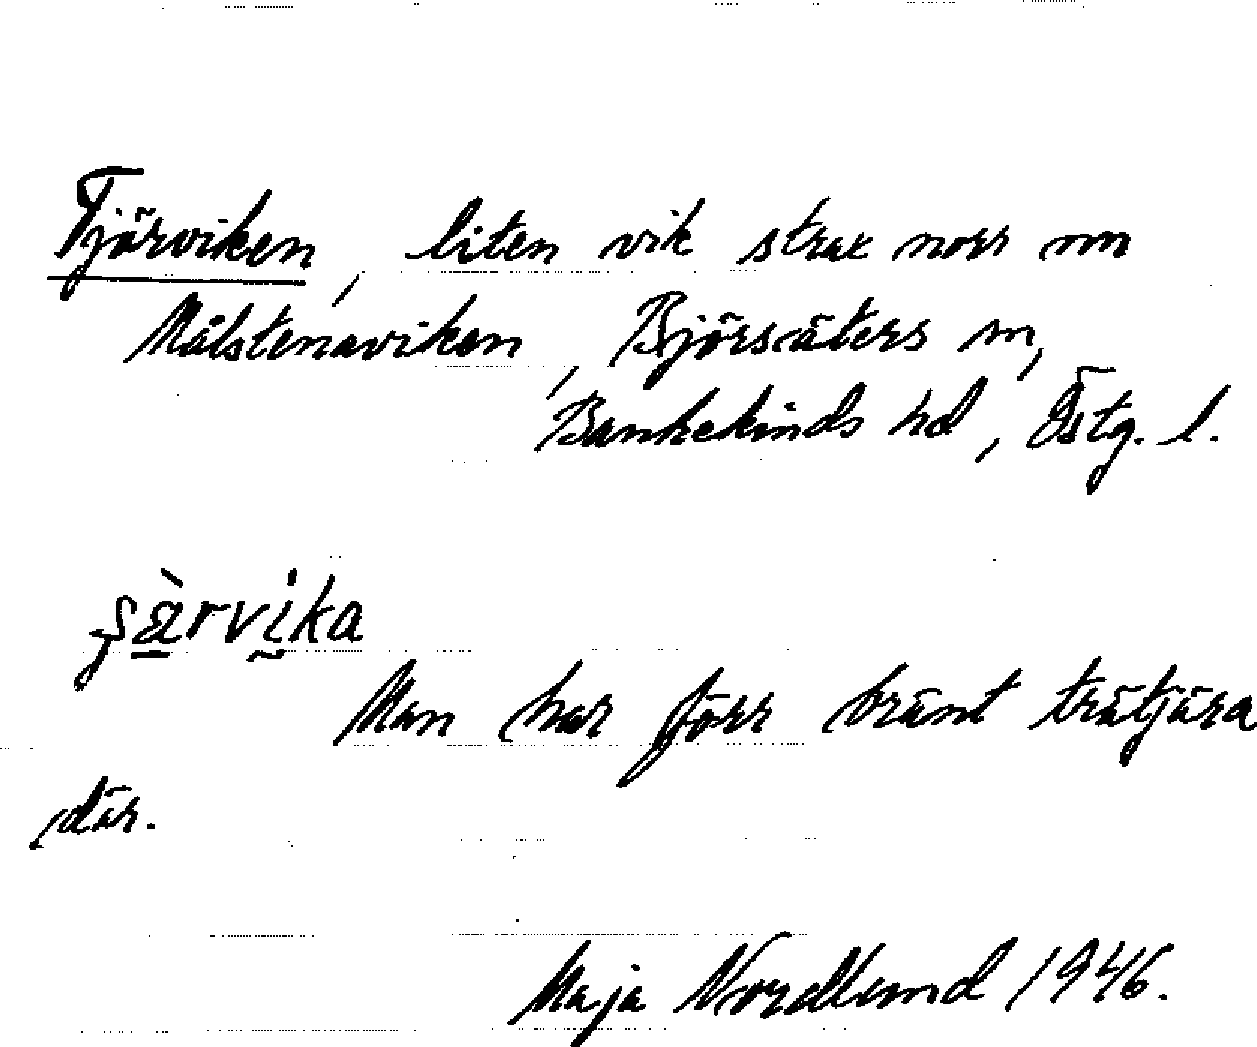 Tjärviken, liten vik strax norr om
Målstenaviken, Björsäters sn,
Bankekinds hd, Östg. l.
Man har förr bränt trätjära
där.
Maja Nordlund 1946.